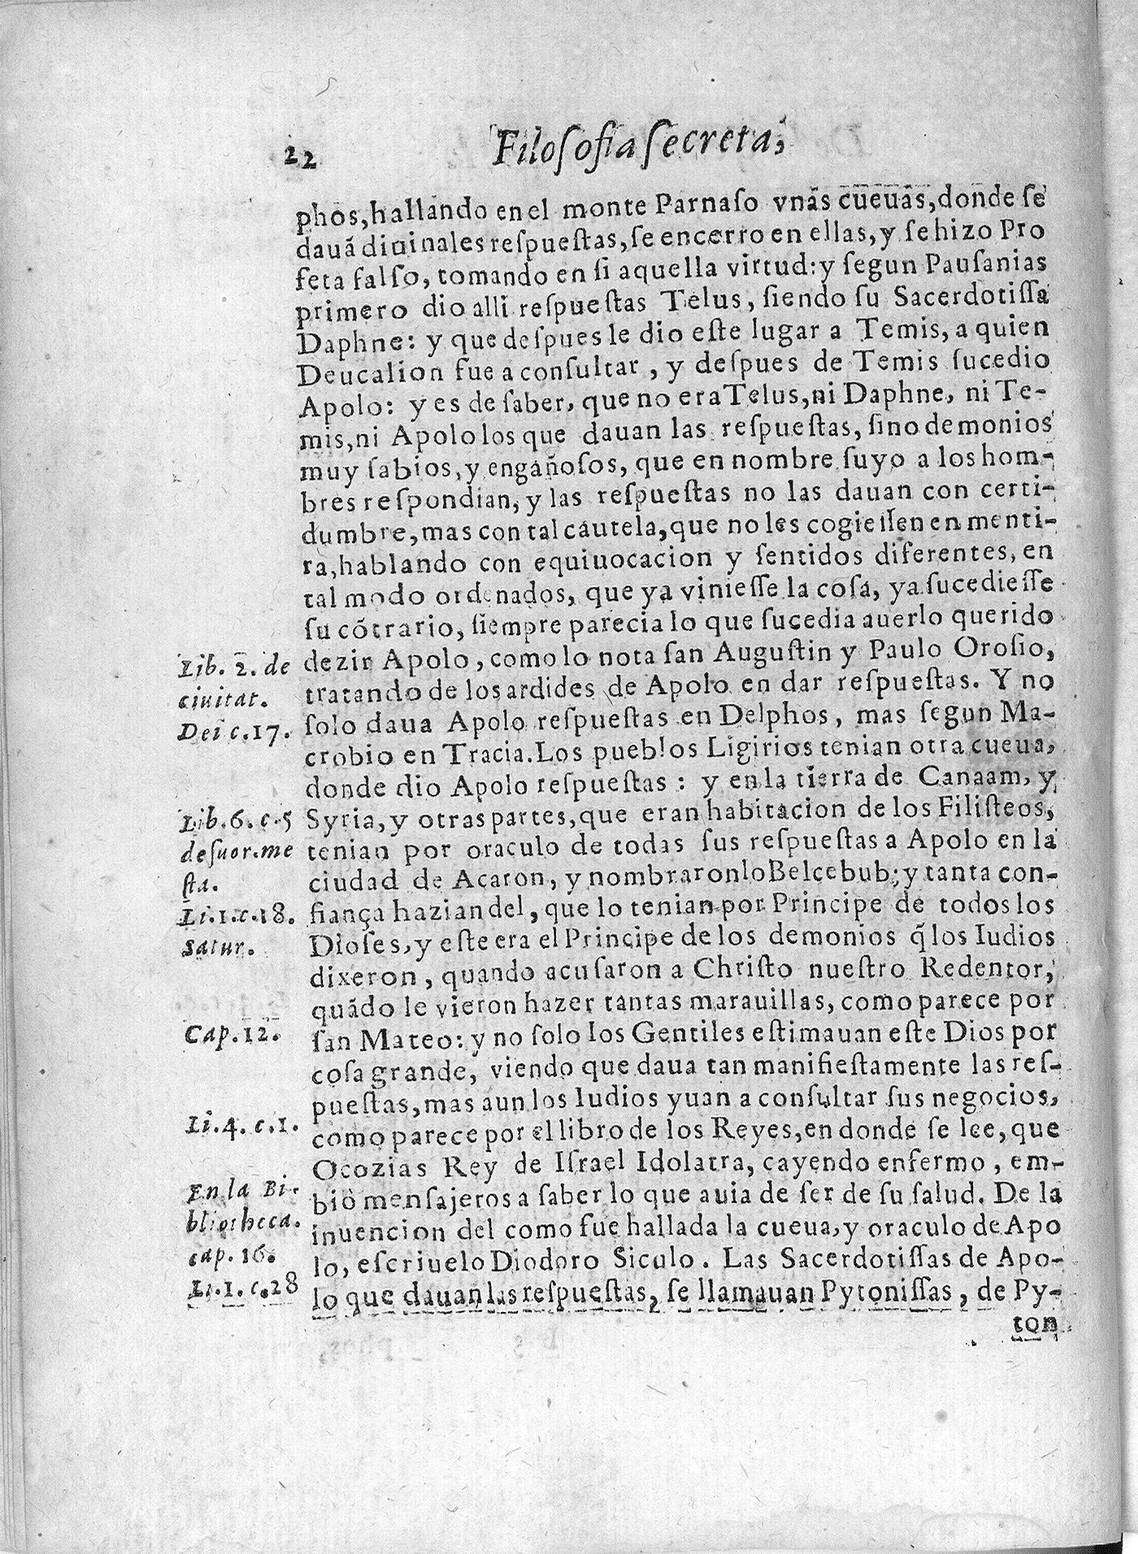 22 Filoſofia ſecreta,
phos, hallando en el monte Parnaſo vnas cueuas, donde ſe
dauã diuinales reſpueſtas, ſe encerro en ellas, y ſe hizo Pro
feta falſo, tomando en ſi aquella virtud: y ſegun Pauſanias
primero dio alli reſpueſtas Telus, ſiendo ſu Sacerdotiſſa
Daphne: y que deſpues le dio eſte lugar a Temis, a quien
Deucalion fue a conſultar, y deſpues de Temis ſucedio
Apolo: y es de ſaber, que no era Telus, ni Daphne, ni Te-
mis, ni Apolo los que dauan las reſpueſtas, ſino demonios
muy ſabios, y engañoſos, que en nombre ſuyo a los hom-
bres reſpondian, y las reſpueſtas no las dauan con certi-
dumbre, mas con tal cautela, que no les cogieſſen en menti-
ra, hablando con equiuocacion y ſentidos diferentes, en
tal modo ordenados, que ya vinieſſe la coſa, ya ſucedieſſe
ſu cõtrario, ſiempre parecia lo que ſucedia auerlo querido
dezir Apolo, como lo nota ſan Auguſtin y Paulo Oroſio,
tratando de los ardides de Apolo en dar reſpueſtas. Y no
ſolo daua Apolo reſpueſtas en Delphos, mas ſegun Ma-
crobio en Tracia. Los pueblos Ligirios tenian otra cueua,
donde dio Apolo reſpueſtas: y en la tierra de Canaam, y
Syria, y otras partes, que eran habitacion de los Filiſteos,
tenian por oraculo de todas ſus reſpueſtas a Apolo en la
ciudad de Acaron, y nombraronlo Belcebub; y tanta con-
fiança hazian del, que lo tenian por Principe de todos los
Dioſes, y eſte era el Principe de los demonios q̃ los Iudios
dixeron, quando acuſaron a Chriſto nueſtro Redentor,
quãdo le vieron hazer tantas marauillas, como parece por
ſan Mateo: y no ſolo los Gentiles eſtimauan eſte Dios por
coſa grande, viendo que daua tan manifieſtamente las reſ-
pueſtas, mas aun los Iudios yuan a conſultar ſus negocios,
como parece por el libro de los Reyes, en donde ſe lee, que
Ocozias Rey de Iſrael Idolatra, cayendo enfermo, em-
biò menſajeros a ſaber lo que auia de ſer de ſu ſalud. De la
inuencion del como fue hallada la cueua, y oraculo de Apo
lo, eſcriuelo Diodoro Siculo. Las Sacerdotiſſas de Apo-
lo que dauan las reſpueſtas, ſe llamauan Pytoniſſas, de Py-
ton
Lib. 2. de
ciuitat.
Dei c. 17.
Lib. 6. c. 5
de ſuor. me
ſta.
Li. 1. c. 18.
Satur.
Cap. 12.
Li. 4. c. 1.
En la Bi-
bliotheca.
cap. 16.
Li. 1. c. 28